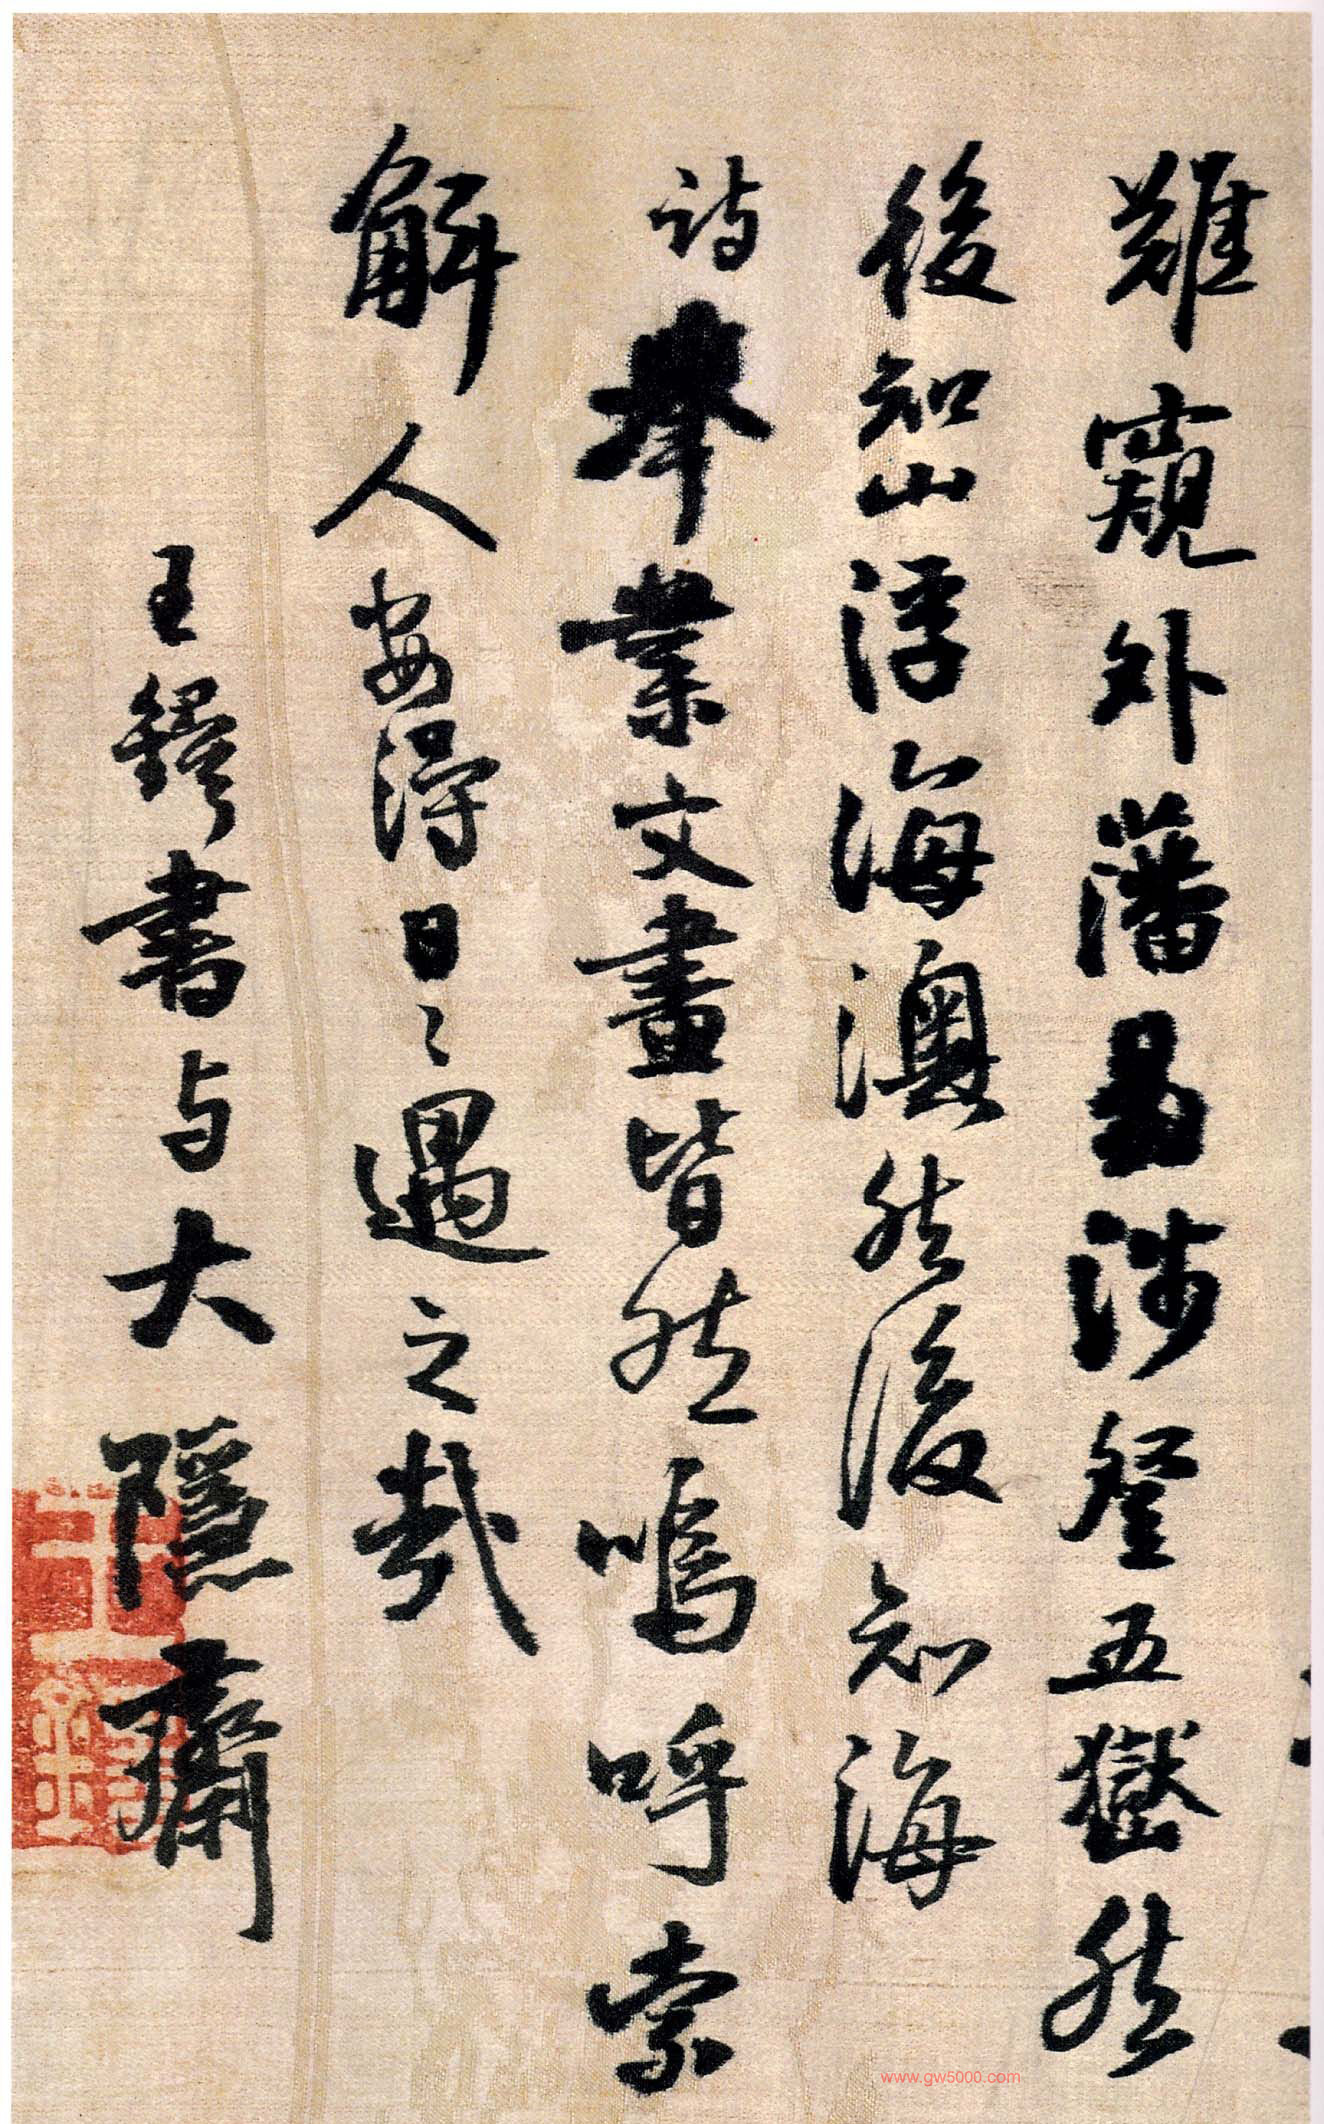 難窺外藩易涉登五嶽然
後知山浮海澳然後知海
詩舉業文畫皆然嗚呼索
解人安得日〻遇之哉
王鐸書与大隱齋
www.gw5000.com